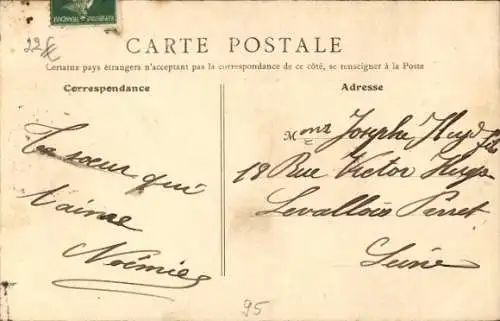 225
CARTE POSTALE
Certains pays étrangers n'acceptant pas la correspondance de ce côté, se renseigner à la Poste
Correspondance
Ta sœur qui
t'aime
Noémie
Adresse
Joseph
18 Rue Victor Hugo
Levallois Perret
Seine
95